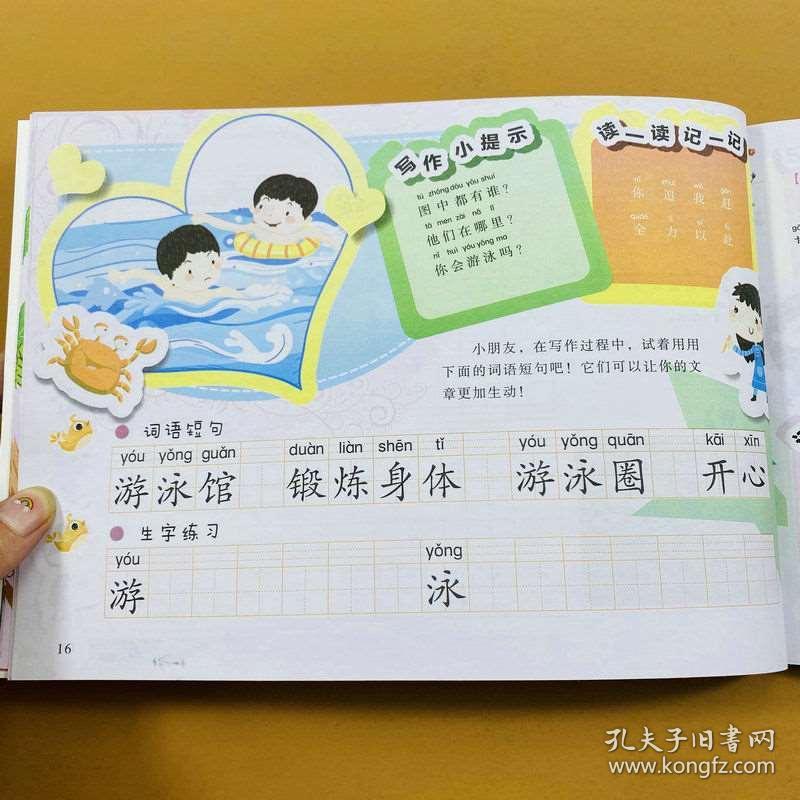 写作小提示
tú zhōng dōu yǒu shuí
图中都有谁？
tā men zài nǎ lǐ
他们在哪里？
nǐ huì yóu yǒng ma
你会游泳吗？
读一读 记一记
nǐ zhuī wǒ gǎn
你追我赶
quán lì yǐ fù
全力以赴
小朋友，在写作过程中，试着用用
下面的词语短句吧！它们可以让你的文
章更加生动！
词语短句
yóu yǒng guǎn duàn liàn shēn tǐ yóu yǒng quān kāi xīn
游泳馆 锻炼身体 游泳圈 开心
生字练习
yóu yǒng
游 泳
16
孔夫子旧书网
www.kongfz.com